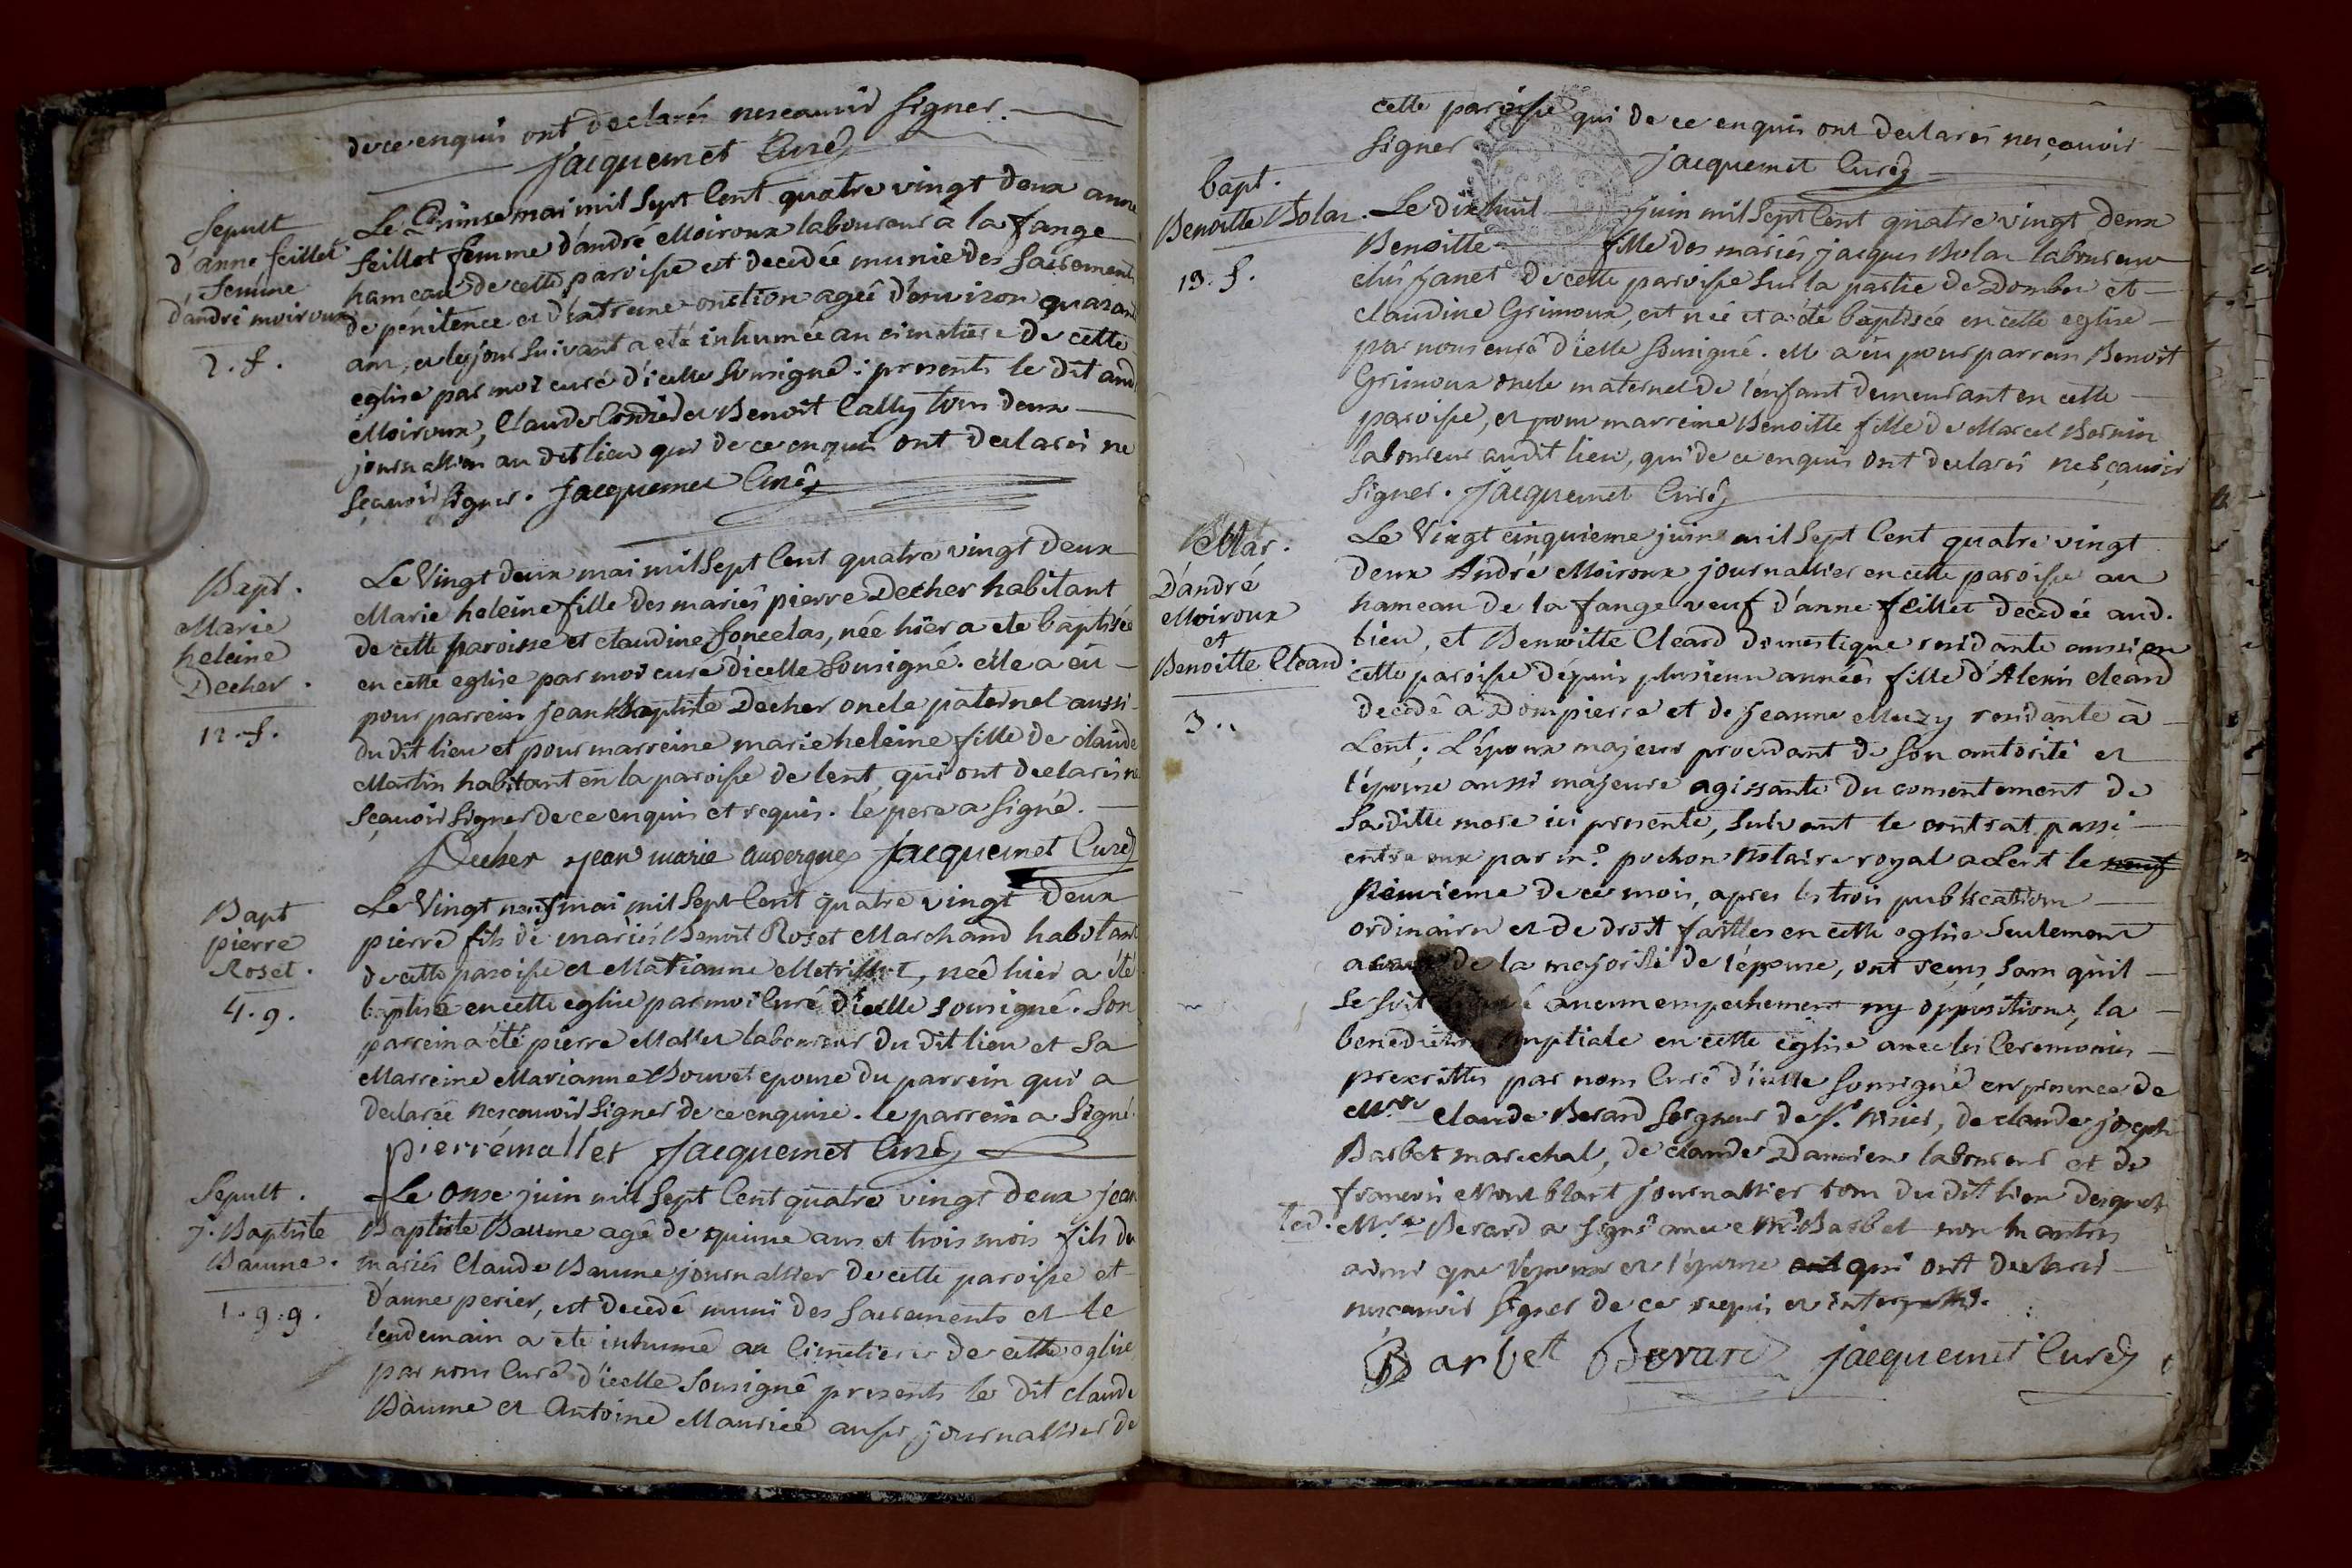 de ce enquis ont declarés nescavoir signer.
jacquemet Curé
Sepult
d'anne feillet
femme
d'andré moiroux
2. f.
Le Quinse mai mil sept Cent quatre vingt deux anne
feillet femme d'andré Moiroux laboureur a la fange
hameau de cette paroisse est decedée munie des sacrements
de pénitence et d'extreme onction ageê d'environ quarante
ans, et le jour suivant a eté inhumée au cimetiere de cette
eglise par moi curé d'icelle sousigné: presents le dit andré
Moiroux, Claude et Benoit Cally tous deux
journallier au dit lieu qui de ce enquis ont declarés ne
sçavoir signer. jacquemet Curé
Bapt.
Marie
heleine
Decher.
12. f.
Le Vingt deux mai mil sept Cent quatre vingt deux
Marie heleine fille des mariés pierre Decher habitant
de cette paroisse et claudine foncelas, née hier a eté baptisée
en cette eglise par moi curé d'icelle sousigné. elle a eû
pour parrein jean Baptiste Decher oncle paternel aussi
du dit lieu et pour marreine marie heleine fille de claude
Martin habitant en la paroisse de lent, qui ont declarés ne
sçavoir signer de ce enquis et requis. le pere a signé.
Decher jean marie auvergne jacquemet Curé
Bapt
pierre
Roset.
4. g.
Le Vingt neuf mai mil sept Cent quatre vingt deux
pierre fils de mariés Benoit Roset Marchand habitant
de cette paroisse et Marianne Metrillot, neê hier a été
baptisé en cette eglise par moi Curé d'icelle sousigné. Son
parrein a été pierre Mallet laboureur du dit lieu et sa
Marreine Marianne Bouvet epouse du parrein qui a
declarée nescavoir signer de ce enquise. le parrein a signé.
pierre mallet jacquemet Curé
Sepult.
j. Baptiste
Baume.
1. g. g.
Le onse juin mil sept Cent quatre vingt deux jean
Baptiste Baume agé de quinse ans et trois mois fils du
mariés Claude Baume journallier de cette paroisse et
d'anne perier, est decedé muni des sacrements et le
lendemain a eté inhumé au Cimetiere de cette eglise
par nous Curé d'icelle sousigné presents le dit claude
Baume et Antoine Mauricé aussi journallier de
cette paroisse qui de ce enquis ont declarés nesçavoir
signer
jacquemet Curé
bapt.
Benoitte Bolar.
13. f.
Le dix huit juin mil sept Cent quatre vingt deux
Benoitte fille des mariés jacques Bolar laboureur
chés janet de cette paroisse sur la partie de Dombes et
claudine Grimoux, est née et a été baptisée en cette eglise
par nous curé d'icelle sousigné. elle a eu pour parrein Benoit
Grimoux oncle maternel de l'enfant demeurant en cette
paroisse, et pour marreine Benoitte fille de Marcel Bornin
laboureur au dit lieu, qui de ce enquis ont declarés nesçavoir
signer. jacquemet Curé
Mar.
D'andré
Moiroux
et
Benoitte Cleard
3..
Le Vingt cinquieme juin mil sept Cent quatre vingt
deux André Moiroux journallier en cette paroisse au
hameau de la fange veuf d'anne feillet decedée aud.
lieu, et Benoitte Cleard domestique residante aussi en
cette paroisse depuis plusieurs années fille d'Alexis cleard
decedé a Dompierre et de jeanne Muzy residante à
Lent; L'époux majeur procedant de son autorité et
l'épouse aussi majeure agissante du consentement de
sa ditte mere ici presente, suivant le contrat passé
entre eux par me pochon Notaire royal a Lent le neuf
neuvieme de ce mois, apres les trois publications
ordinaires et de droit faittes en cette eglise seulement
a de la majorité de l'épouse, ont reçus, sans qu'il
se soit aucun empechement ny opposition, la
benediction nuptiale en cette eglise avec les Ceremonies
prescrittes par nous Curé d'icelle sousigné en presence de
Mr. claude Berard seigneur de St. , de claude joseph
Barbet marechal, de claude Damiens laboureur et de
francois Mont blant journallier tous du dit lieu desquels
led. Mr. Berard a signé avec Mr. Barbet non les autres
ainsi que l'époux et l'épouse ont qui ont declaré
nesçavoir signer de ce requis et interpellés.
Barbet Berard jacquemet Curé